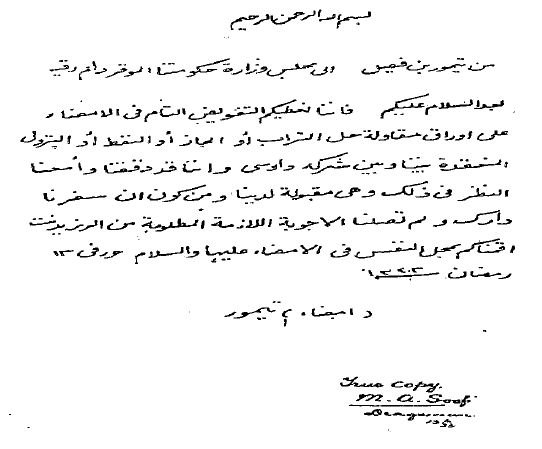 بسم الله الرحمن الرحيم
من تيمور بن فيصل الى مجلس وزارة حكومتنا الموقر دام رقيه
بعد السلام عليكم فاننا نعطيكم التفويض التام في الامضاء
على اوراق مقاولة حل التراب أو الجاز أو النفط أو البترول
المنعقدة بيننا وبين شركة دارسى واننا قد دققنا وأمعنا
النظر في ذلك وهي مقبولة لدينا ومن كون ان سفرنا
دارك ولم تصلنا الاجوبة اللازمة المطلوبة من الرزيدنت
اقمناكم بمحل النفس في الامضاء عليها والسلام حرر في ١٣
رمضان
د امضاء م تيمور
True Copy.
M. A. Soofi